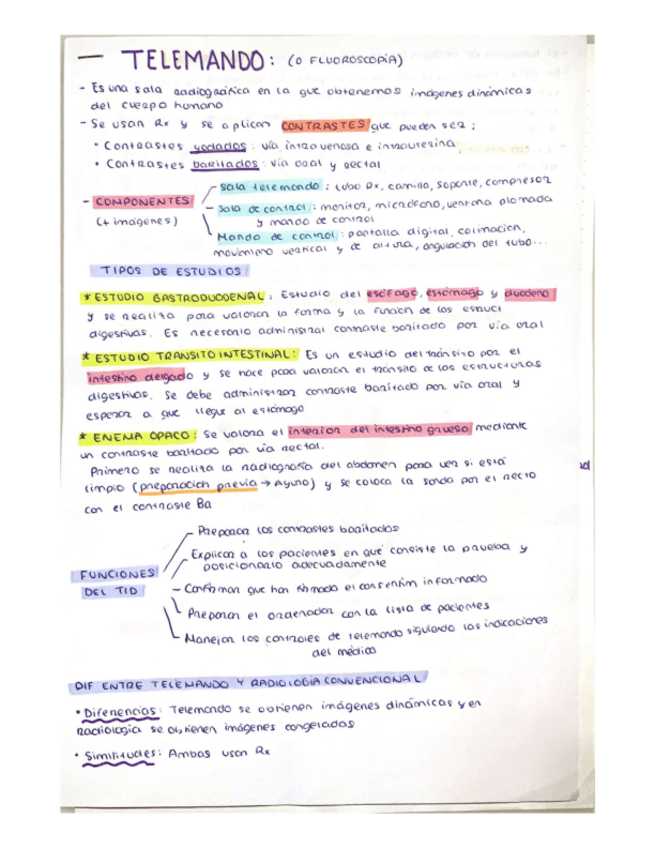 — TELEMANDO: (o FLUOROSCOPÍA)
- Es una sala radiográfica en la que obtenemos imágenes dinámicas
del cuerpo humano
- Se usan Rx y se aplican CONTRASTES que pueden ser:
• Contrastes yodados: vía intravenosa e intrauterina.
• Contrastes baritados: vía oral y rectal
- COMPONENTES
(+ imágenes)
Sala telemando: tubo Rx, camilla, soporte, compresor
Sala de control: monitor, micrófono, ventana plomada
y mando de control
Mando de control: pantalla digital, colimación,
movimiento vertical y de altura, angulación del tubo...
TIPOS DE ESTUDIOS
* ESTUDIO GASTRODUODENAL: Estudio del esófago, estómago y duodeno
y se realiza para valorar la forma y la función de las estruct
digestivas. Es necesario administrar contraste baritado por vía oral
* ESTUDIO TRANSITO INTESTINAL: Es un estudio del tránsito por el
intestino delgado y se hace para valorar el tránsito de las estructuras
digestivas. Se debe administrar contraste baritado por vía oral y
esperar a que llegue al estómago
* ENEMA OPACO: Se valora el interior del intestino grueso mediante
un contraste baritado por vía rectal.
Primero se realiza la radiografía del abdomen para ver si está
limpio (preparación previa → Ayuno) y se coloca la sonda por el recto
con el contraste Ba
ad
FUNCIONES
DEL TID
Preparar los contrastes baritados
Explicar a los pacientes en qué consiste la prueba y
posicionarlo adecuadamente
Confirmar que han firmado el consentim informado
Preparar el ordenador con la lista de pacientes
Manejar los controles de telemando siguiendo las indicaciones
del médico
DIF ENTRE TELEMANDO Y RADIOLOGIA CONVENCIONAL
• Diferencias: Telemando se obtienen imágenes dinámicas y en
radiología se obtienen imágenes congeladas
• Similitudes: Ambas usan Rx